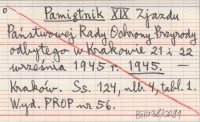 Pamiętnik XIX Zjazdu
Państwowej Rady Ochrony Przyrody
odbytego w Krakowie 21 i 22
września 1945 r. 1945.
Kraków. Ss. 124, nlb. 4, tabl. 1.
Wyd. PROP nr 56.